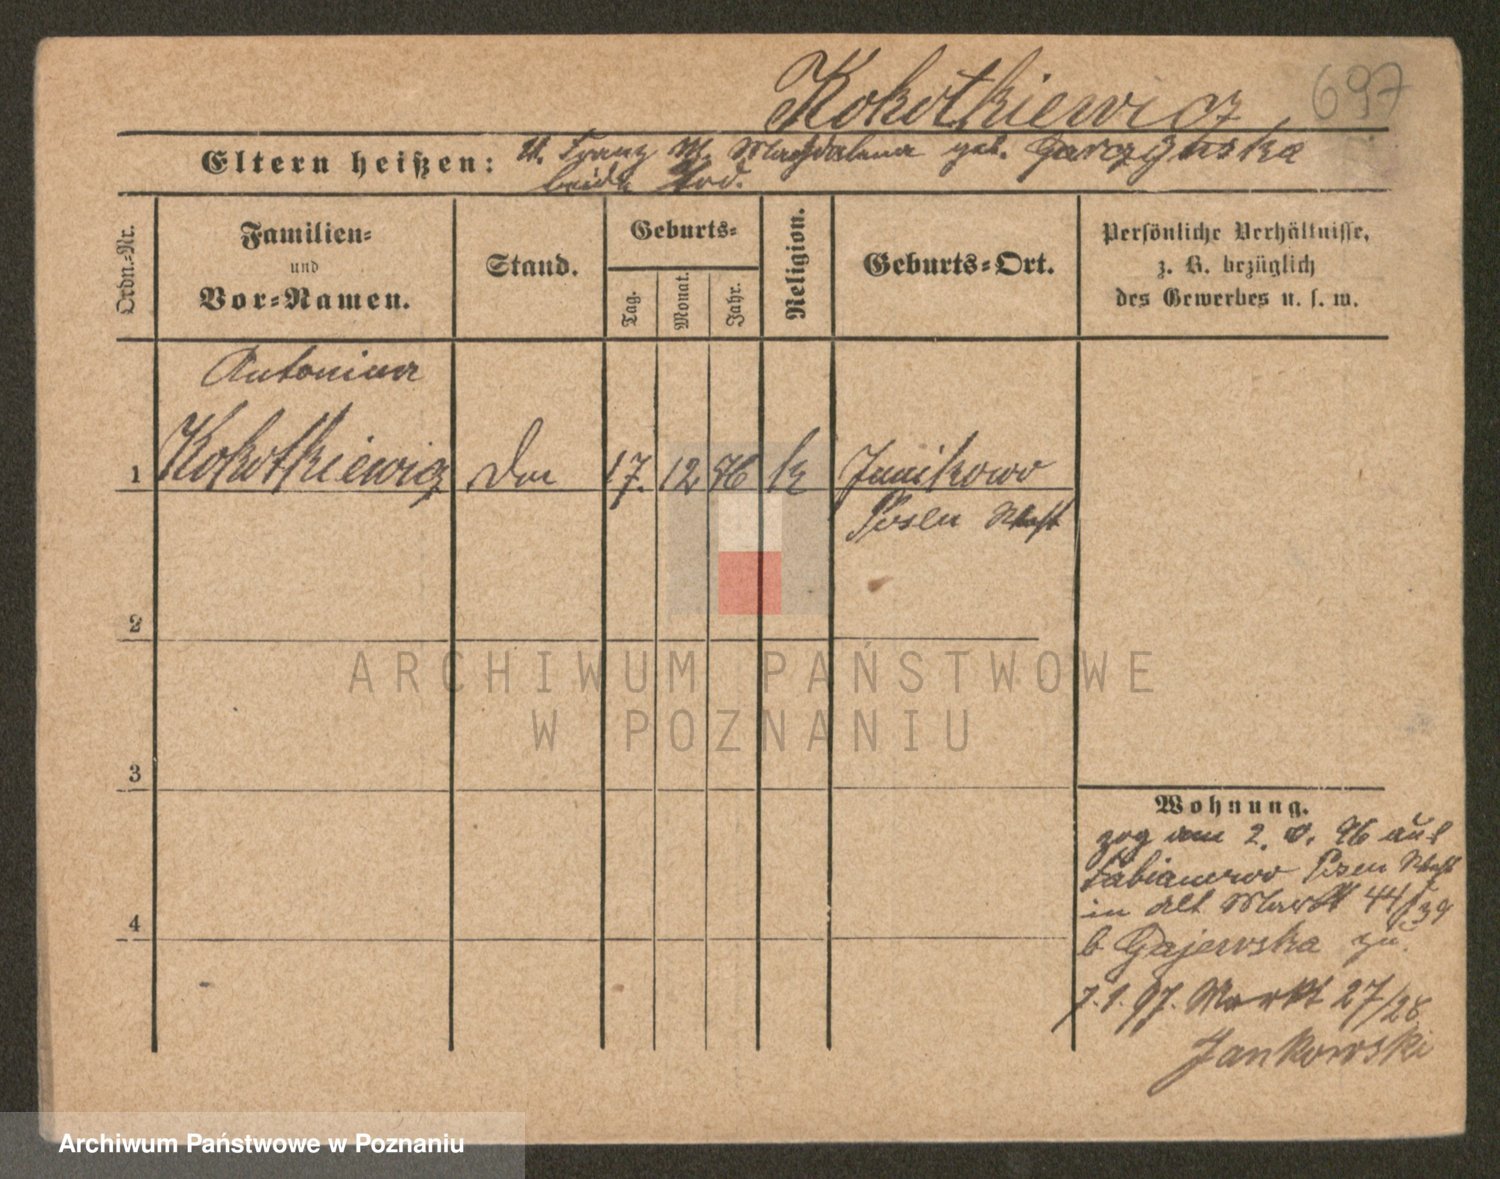 Kokotkiewicz 697
Eltern heißen: V. Franz M. Magdalena geb. Garczynska
beide tod.
Ordn.-Nr.
Familien-
und
Vor-Namen.
Stand.
Geburts-
Tag.
Monat.
Jahr.
Religion.
Geburts-Ort.
Persönliche Verhältnisse,
z. B. bezüglich
des Gewerbes u. s. w.
Antonina
1 Kokotkiewicz 17. 12 76 k Janikowo
Posen West
2
3
4
Wohnung.
zog am 2. 96 aus
Fabianowo Posen West
in Alt Markt 44 / 39
b Gajewska zu.
7.1.97. Markt 27/28
Jankowski
ARCHIWUM PAŃSTWOWE
W POZNANIU
Archiwum Państwowe w Poznaniu